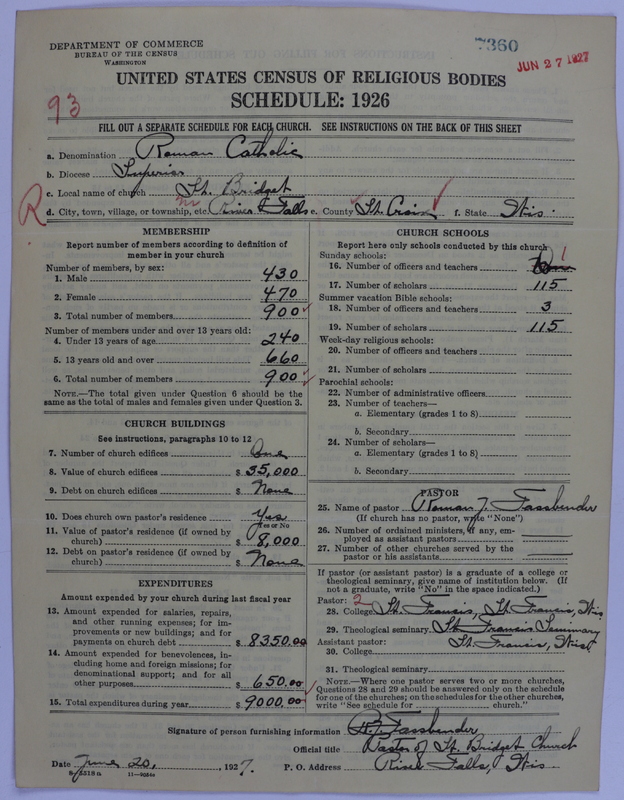 7360
JUN 27 1927
DEPARTMENT OF COMMERCE
BUREAU OF THE CENSUS
WASHINGTON
UNITED STATES CENSUS OF RELIGIOUS BODIES
SCHEDULE: 1926
93
FILL OUT A SEPARATE SCHEDULE FOR EACH CHURCH. SEE INSTRUCTIONS ON THE BACK OF THIS SHEET
a. Denomination Roman Catholic
b. Diocese Superior
c. Local name of church St. Bridget
R d. City, town, village, or township, etc. River Falls e. County St. Croix f. State Wis.
MEMBERSHIP
Report number of members according to definition of
member in your church
Number of members, by sex:
1. Male 430
2. Female 470
3. Total number of members 900
Number of members under and over 13 years old:
4. Under 13 years of age 240
5. 13 years old and over 660
6. Total number of members 900
NOTE.—The total given under Question 6 should be
same as the total of males and females given under Question 3.
CHURCH BUILDINGS
See instructions, paragraphs 10 to 12
7. Number of church edifices One
8. Value of church edifices $ 35,000
9. Debt on church edifices $ None
10. Does church own pastor's residence Yes
Yes or No
11. Value of pastor's residence (if owned by
church) $ 8,000
12. Debt on pastor's residence (if owned by
church) $ None
EXPENDITURES
Amount expended by your church during last fiscal year
13. Amount expended for salaries, repairs,
and other running expenses; for im-
provements or new buildings; and for
payments on church debt $ 8350.00
14. Amount expended for benevolences, in-
cluding home and foreign missions; for
denominational support; and for all
other purposes $ 650.00
15. Total expenditures during year $ 9000.00
CHURCH SCHOOLS
Report here only schools conducted by this church
Sunday schools:
16. Number of officers and teachers 1
17. Number of scholars 115
Summer vacation Bible schools:
18. Number of officers and teachers 3
19. Number of scholars 115
Week-day religious schools:
20. Number of officers and teachers
21. Number of scholars
Parochial schools:
22. Number of administrative officers
23. Number of teachers—
a. Elementary (grades 1 to 8)
b. Secondary
24. Number of scholars—
a. Elementary (grades 1 to 8)
b. Secondary
PASTOR
25. Name of pastor Roman J. Fassbender
(If church has no pastor, write "None")
26. Number of ordained ministers, if any, em-
ployed as assistant pastors
27. Number of other churches served by the
pastor or his assistants
If pastor (or assistant pastor) is a graduate of a college or
theological seminary, give name of institution below. (If
not a graduate, write "No" in the space indicated.)
Pastor: 2
28. College St. Francis, St. Francis, Wis
29. Theological seminary St Francis Seminary
Assistant pastor: St. Francis, Wis
30. College
31. Theological seminary
NOTE.—Where one pastor serves two or more churches,
Questions 28 and 29 should be answered only on the schedule
for one of the churches; on the schedules for the other churches,
write "See schedule for church."
Signature of person furnishing information R. J. Fassbender
Official title Pastor of St. Bridget Church
Date June 20, 1927. P. O. Address River Falls, Wis
8-5318 a 11-9034a